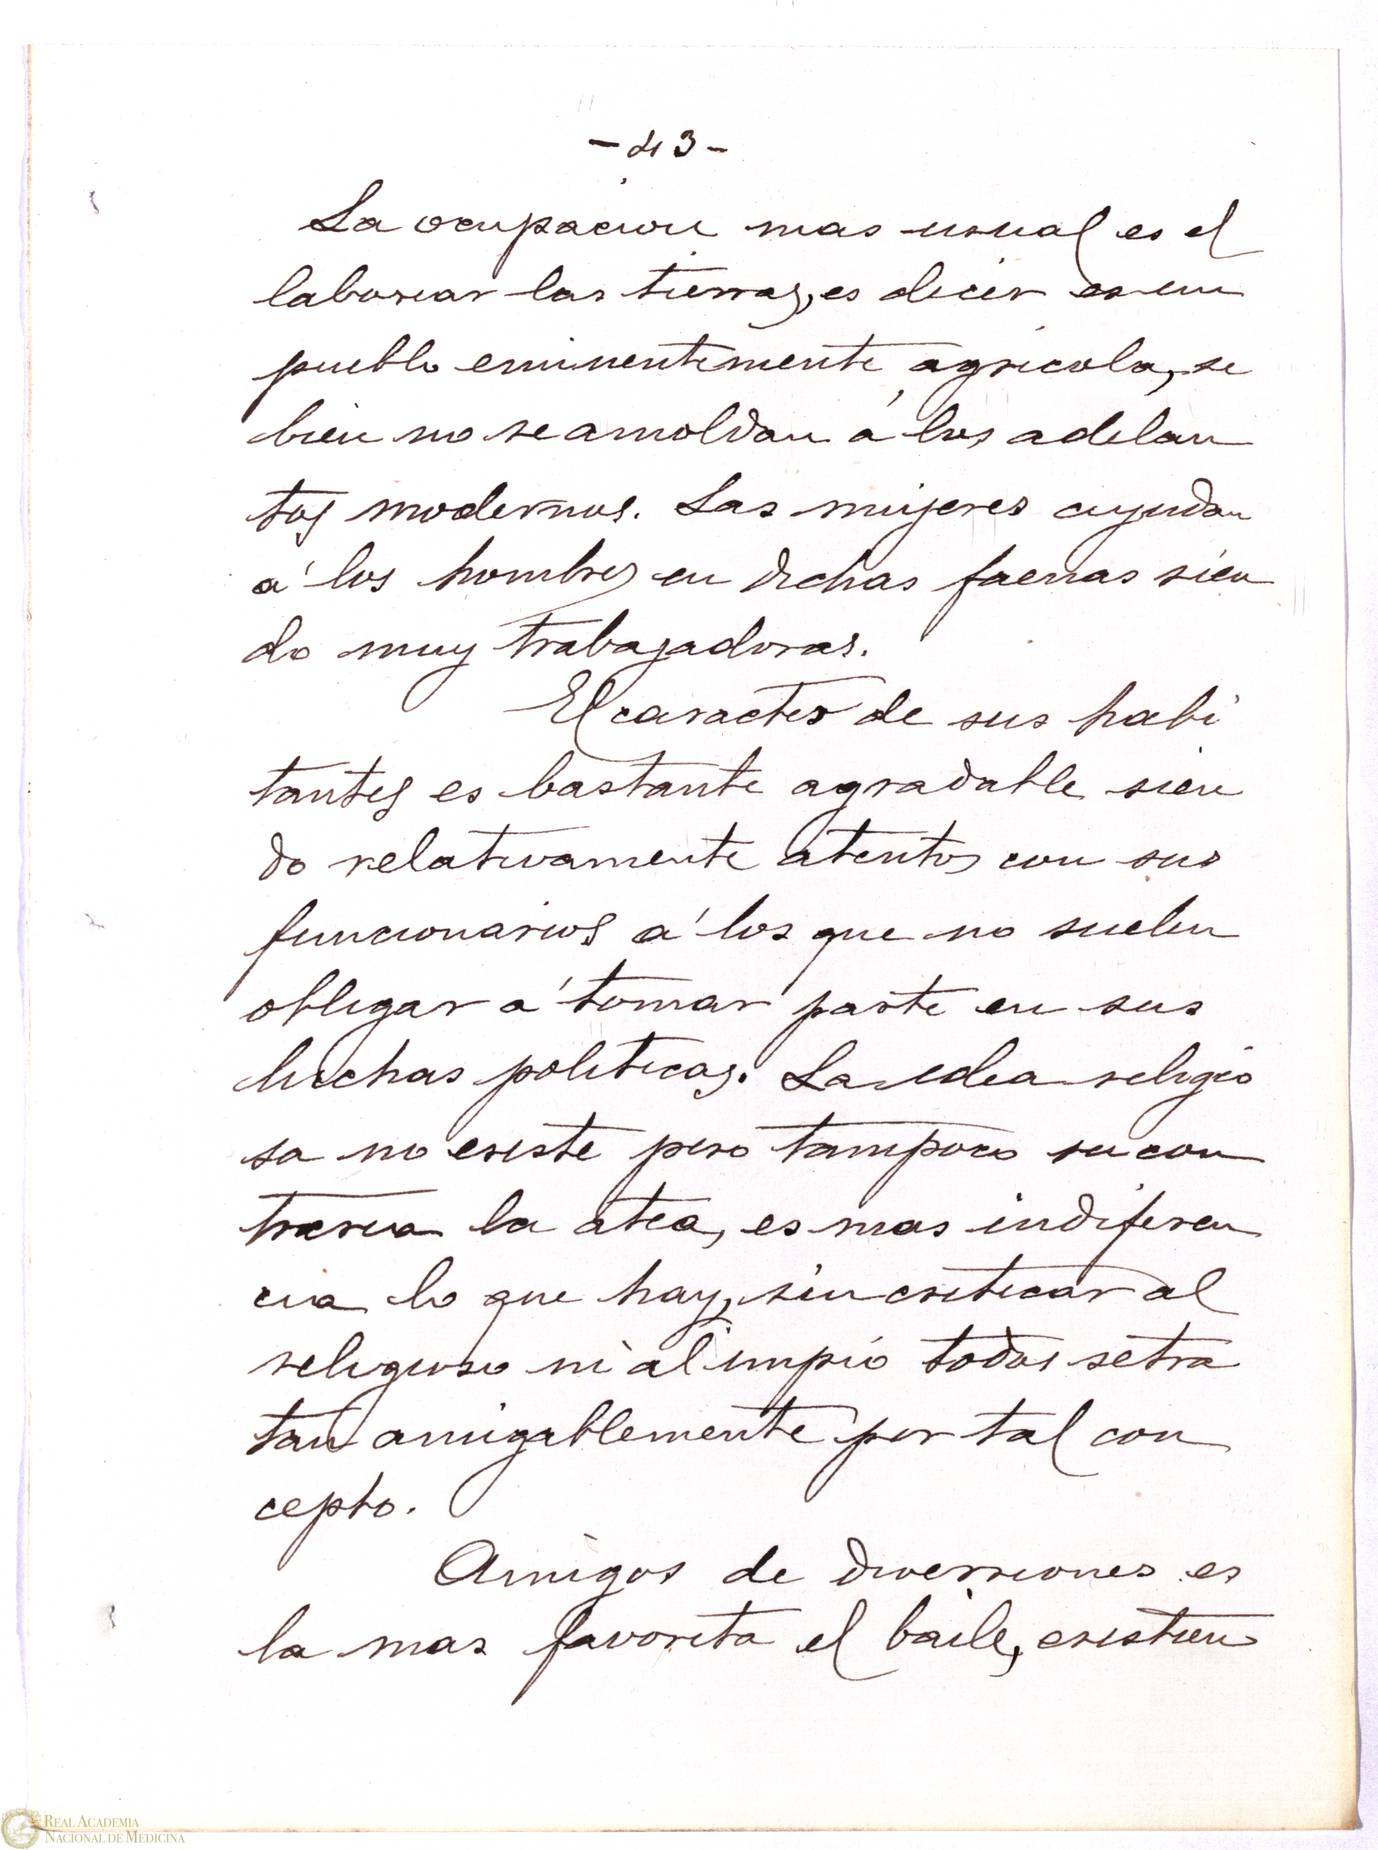 - 43 -
La ocupación mas usual es el
laborear las tierras, es decir es un
pueblo eminentemente agricola, si
bien no se amoldan á los adelan
tos modernos. Las mujeres ayudan
á los hombres en dichas faenas sien
do muy trabajadoras.
El caracter de sus habi
tantes es bastante agradable sien
do relativamente atentos con sus
funcionarios á los que no suelen
obligar á tomar parte en sus
luchas politicas. La idea religio
sa no existe pero tampoco su con
traria la atea, es mas indiferen
cia lo que hay, sin criticar al
religioso ni al impio todos se tra
tan amigablemente por tal con
cepto.
Amigos de diversiones es
la mas favorita el baile, existien
REAL ACADEMIA
NACIONAL DE MEDICINA